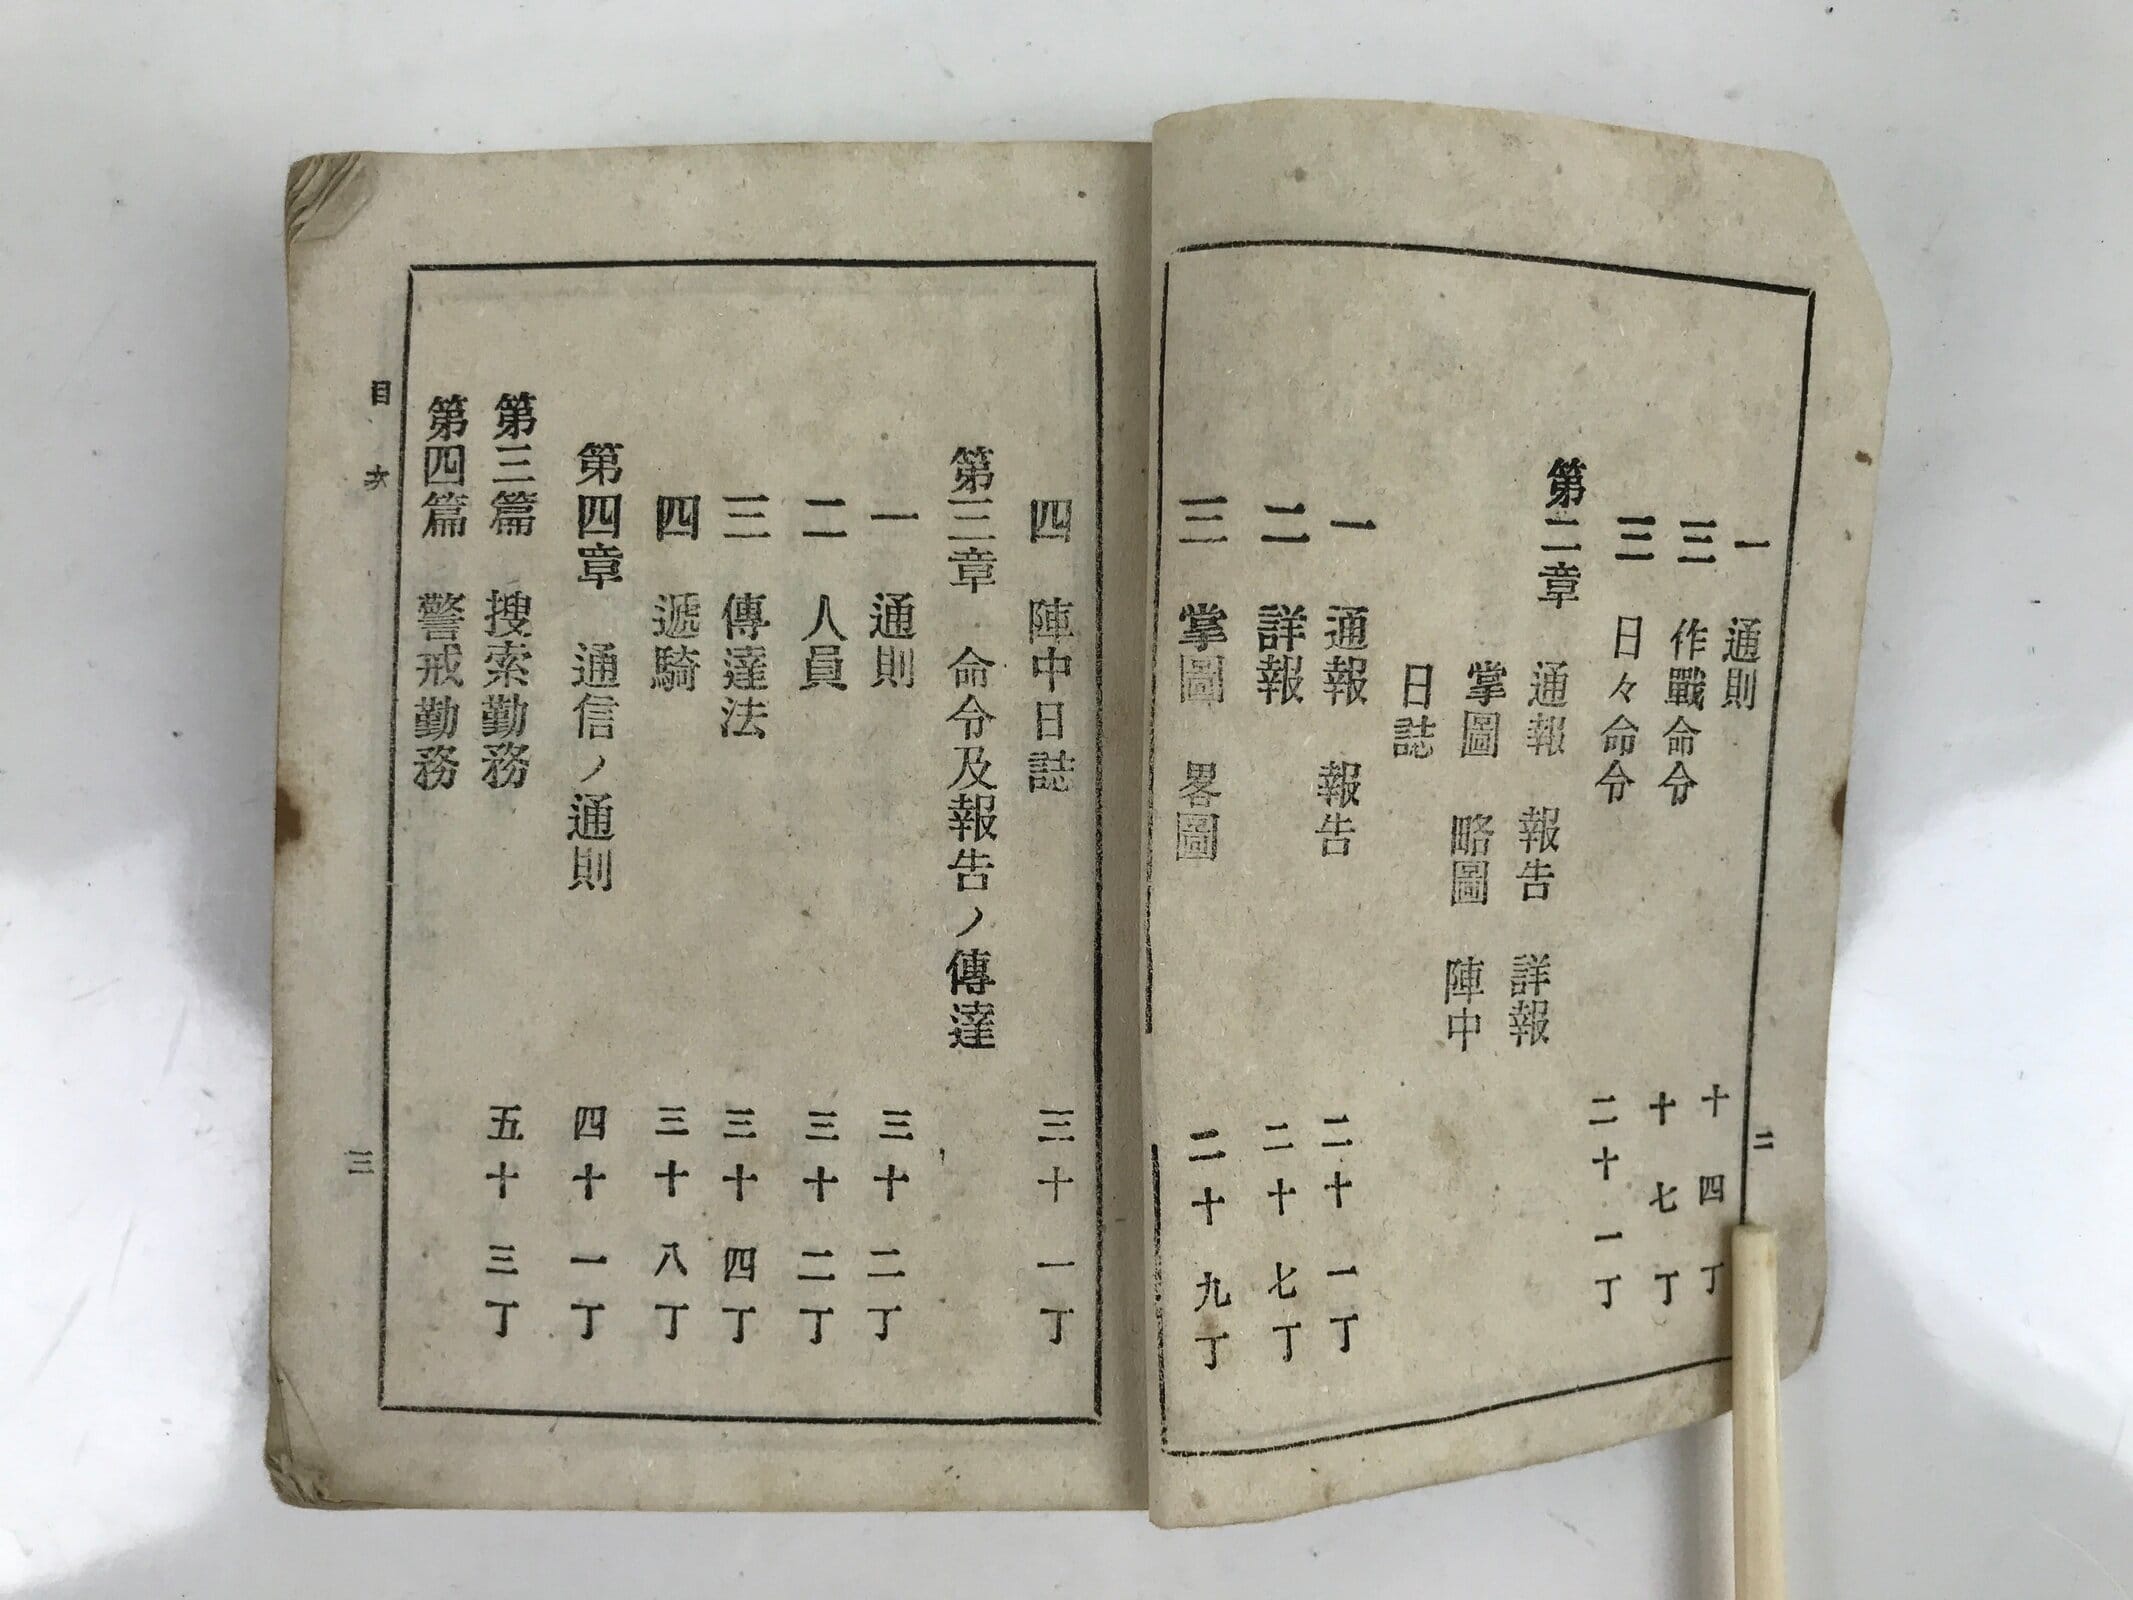 二
一 通則 十四丁
三 作戰命令 十七丁
三 日々命令 二十一丁
第二章 通報 報告 詳報
掌圖 略圖 陣中
日誌
一 通報 報告 二十一丁
二 詳報 二十七丁
三 掌圖 畧圖 二十九丁
四 陣中日誌 三十一丁
第三章 命令及報告ノ傳達
一 通則 三十二丁
二 人員 三十二丁
三 傳達法 三十四丁
四 遞騎 三十八丁
第四章 通信ノ通則 四十一丁
第三篇 搜索勤務 五十三丁
第四篇 警戒勤務
目次 三